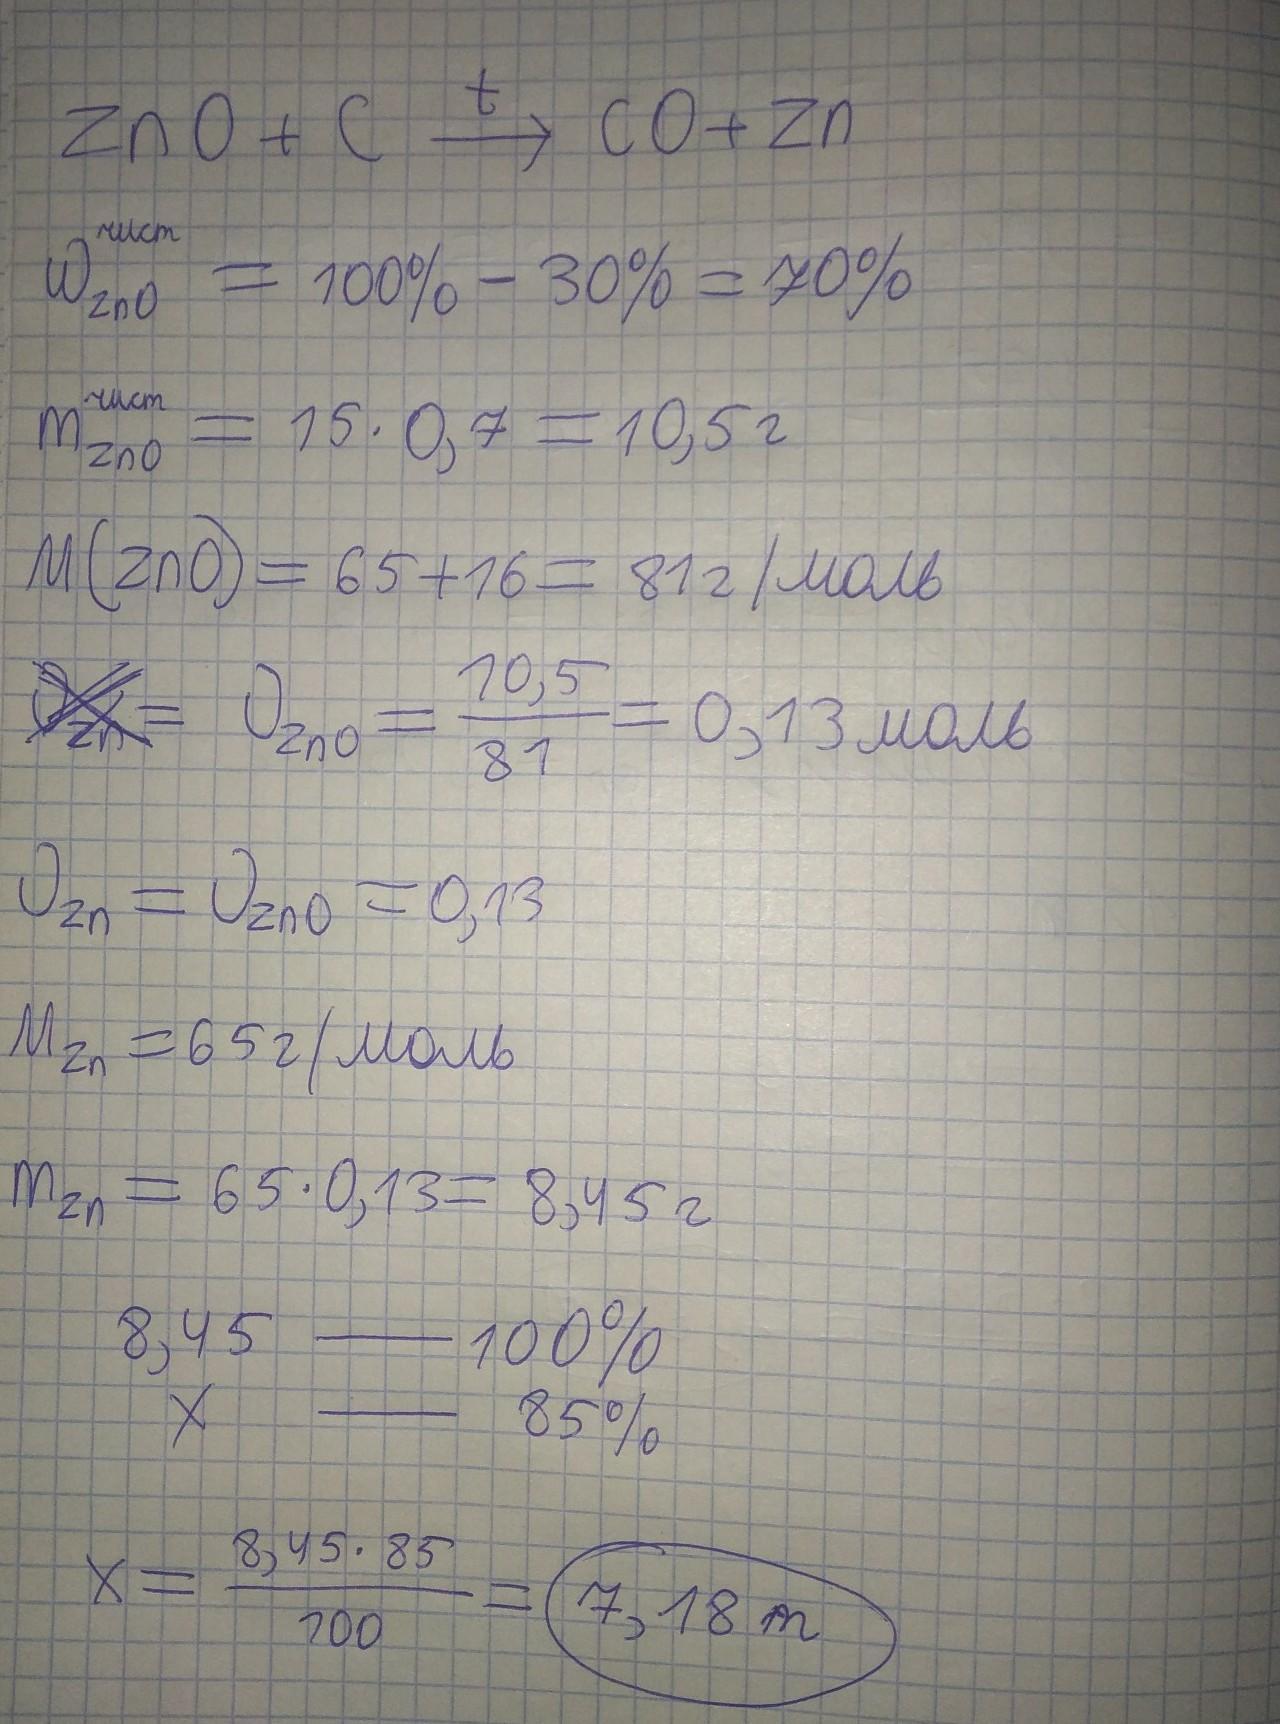 ZnO + C t→ CO + Zn
W чист ZnO = 100% - 30% = 70%
m чист ZnO = 15 · 0,7 = 10,5 г
M(ZnO) = 65 + 16 = 81 г/моль
= υZnO = 10,5/81 = 0,13 моль
υZn = υZnO = 0,13
MZn = 65 г/моль
mZn = 65 · 0,13 = 8,45 г
8,45 — 100%
X — 85%
X = 8,45 · 85/100 = 7,18 т